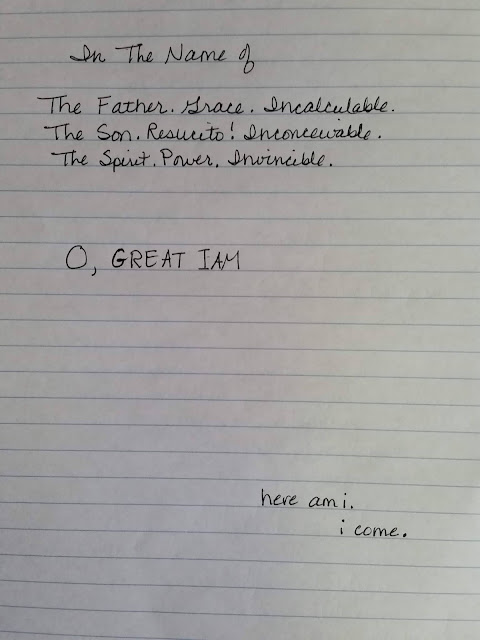 In The Name of
The Father. Grace. Incalculable.
The Son. Resucito! Inconceivable.
The Spirit. Power. Invincible.
O, GREAT I AM
here am i.
i come.